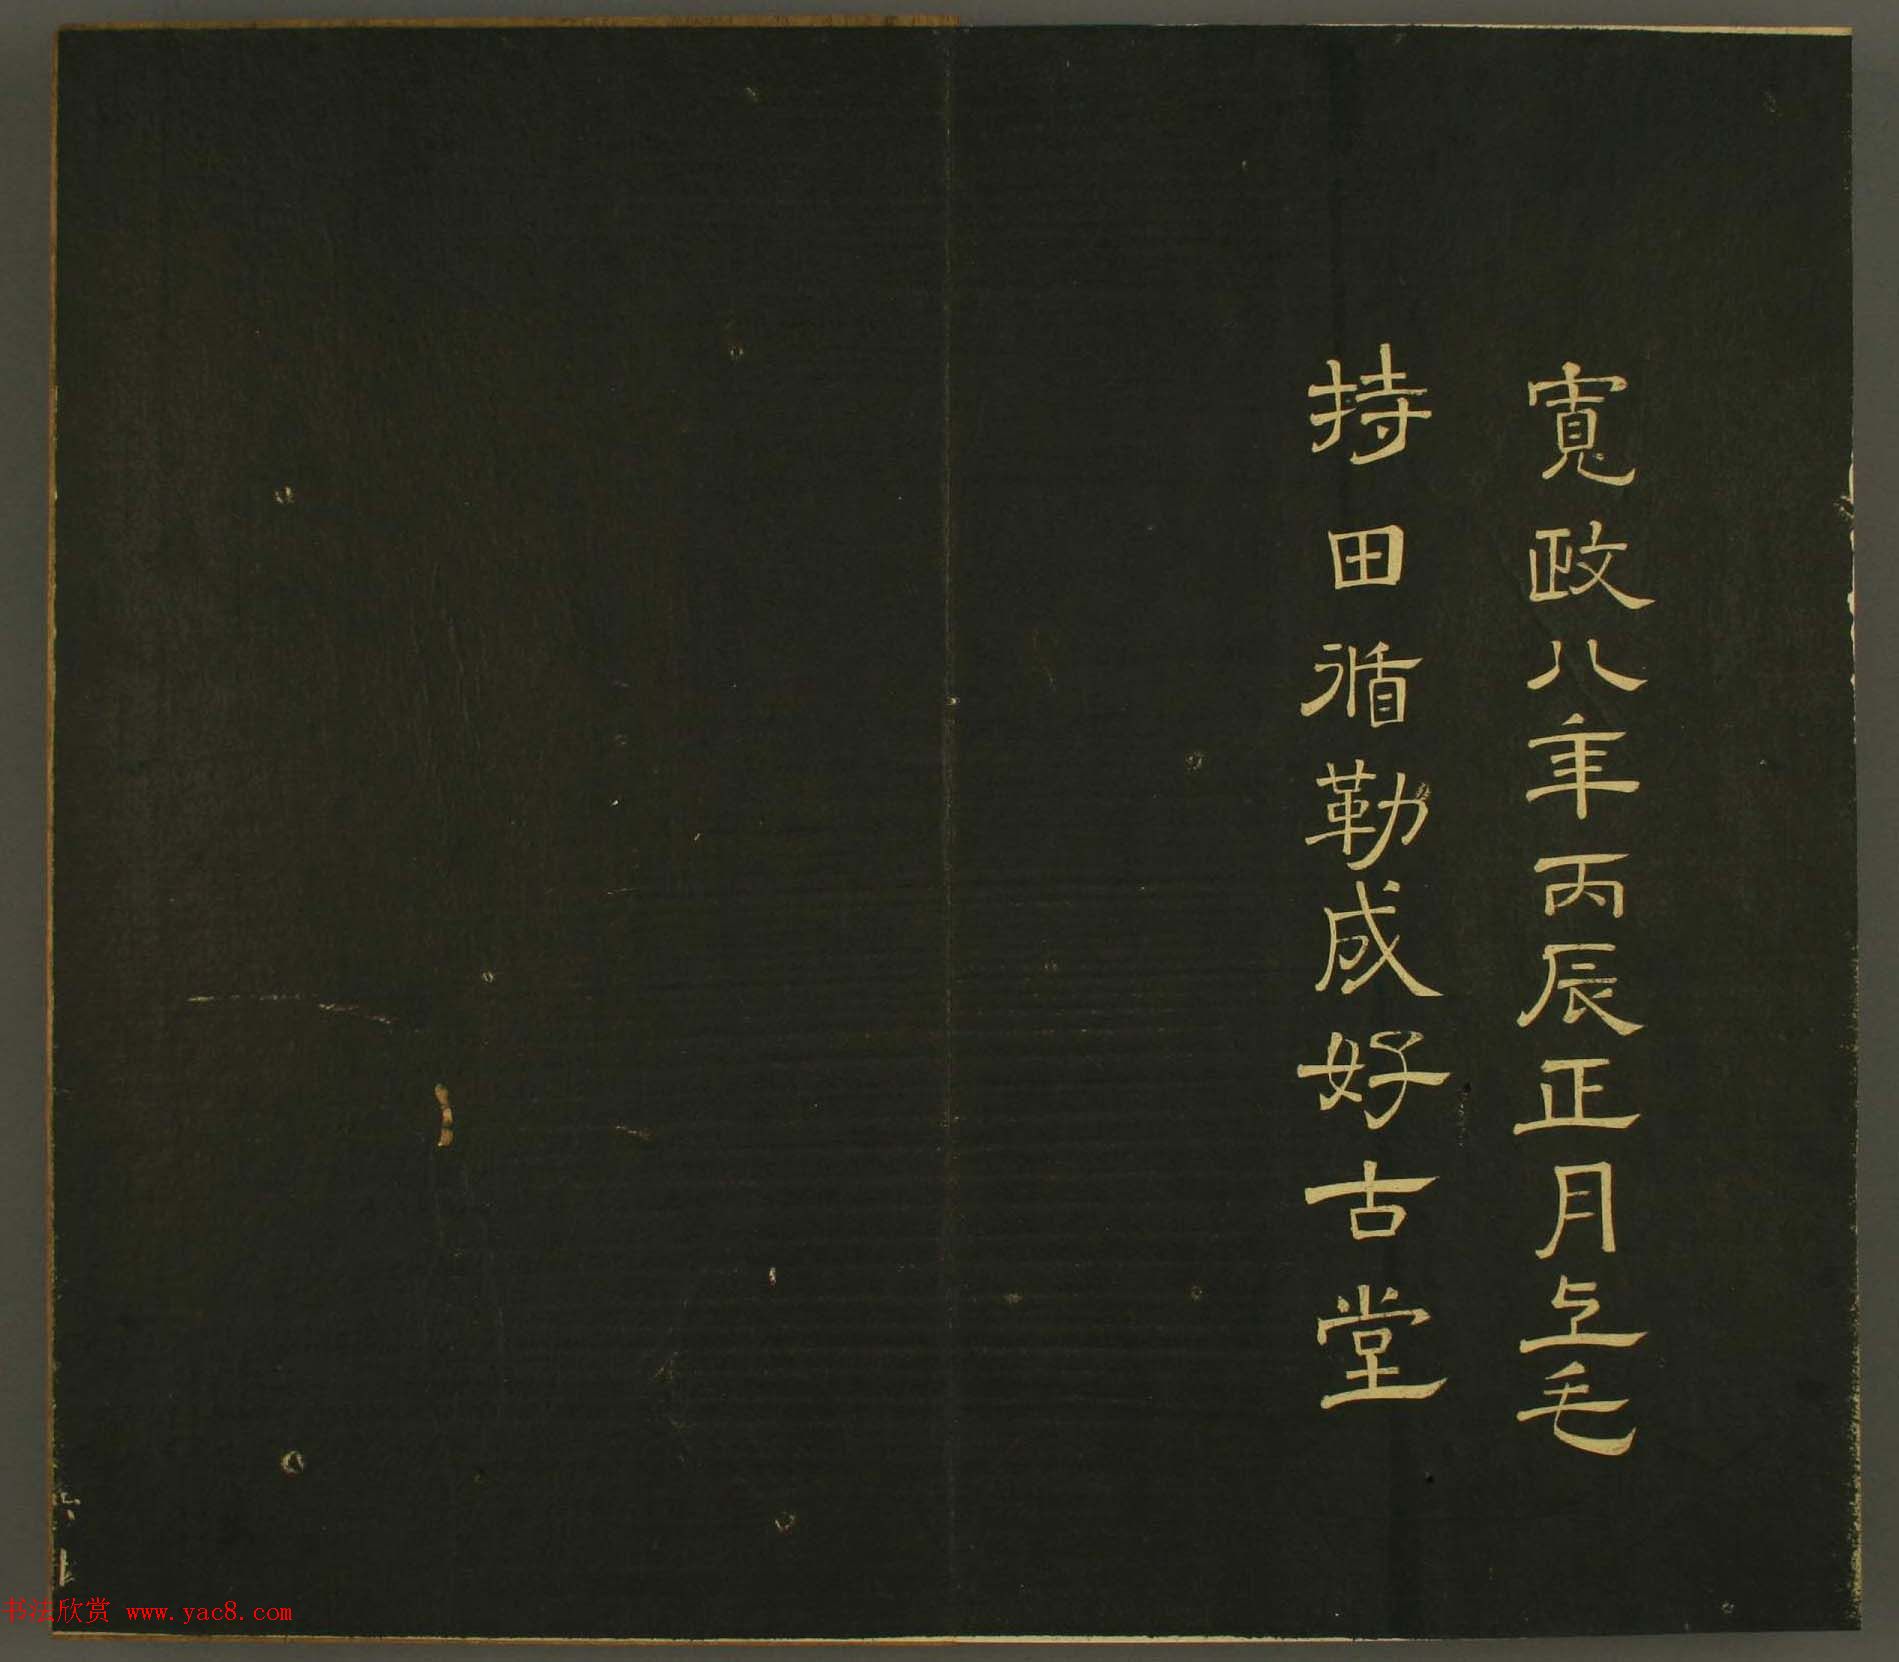 寛政八年丙辰正月上毛
持田循勒成好古堂
书法欣赏 www.yac8.com